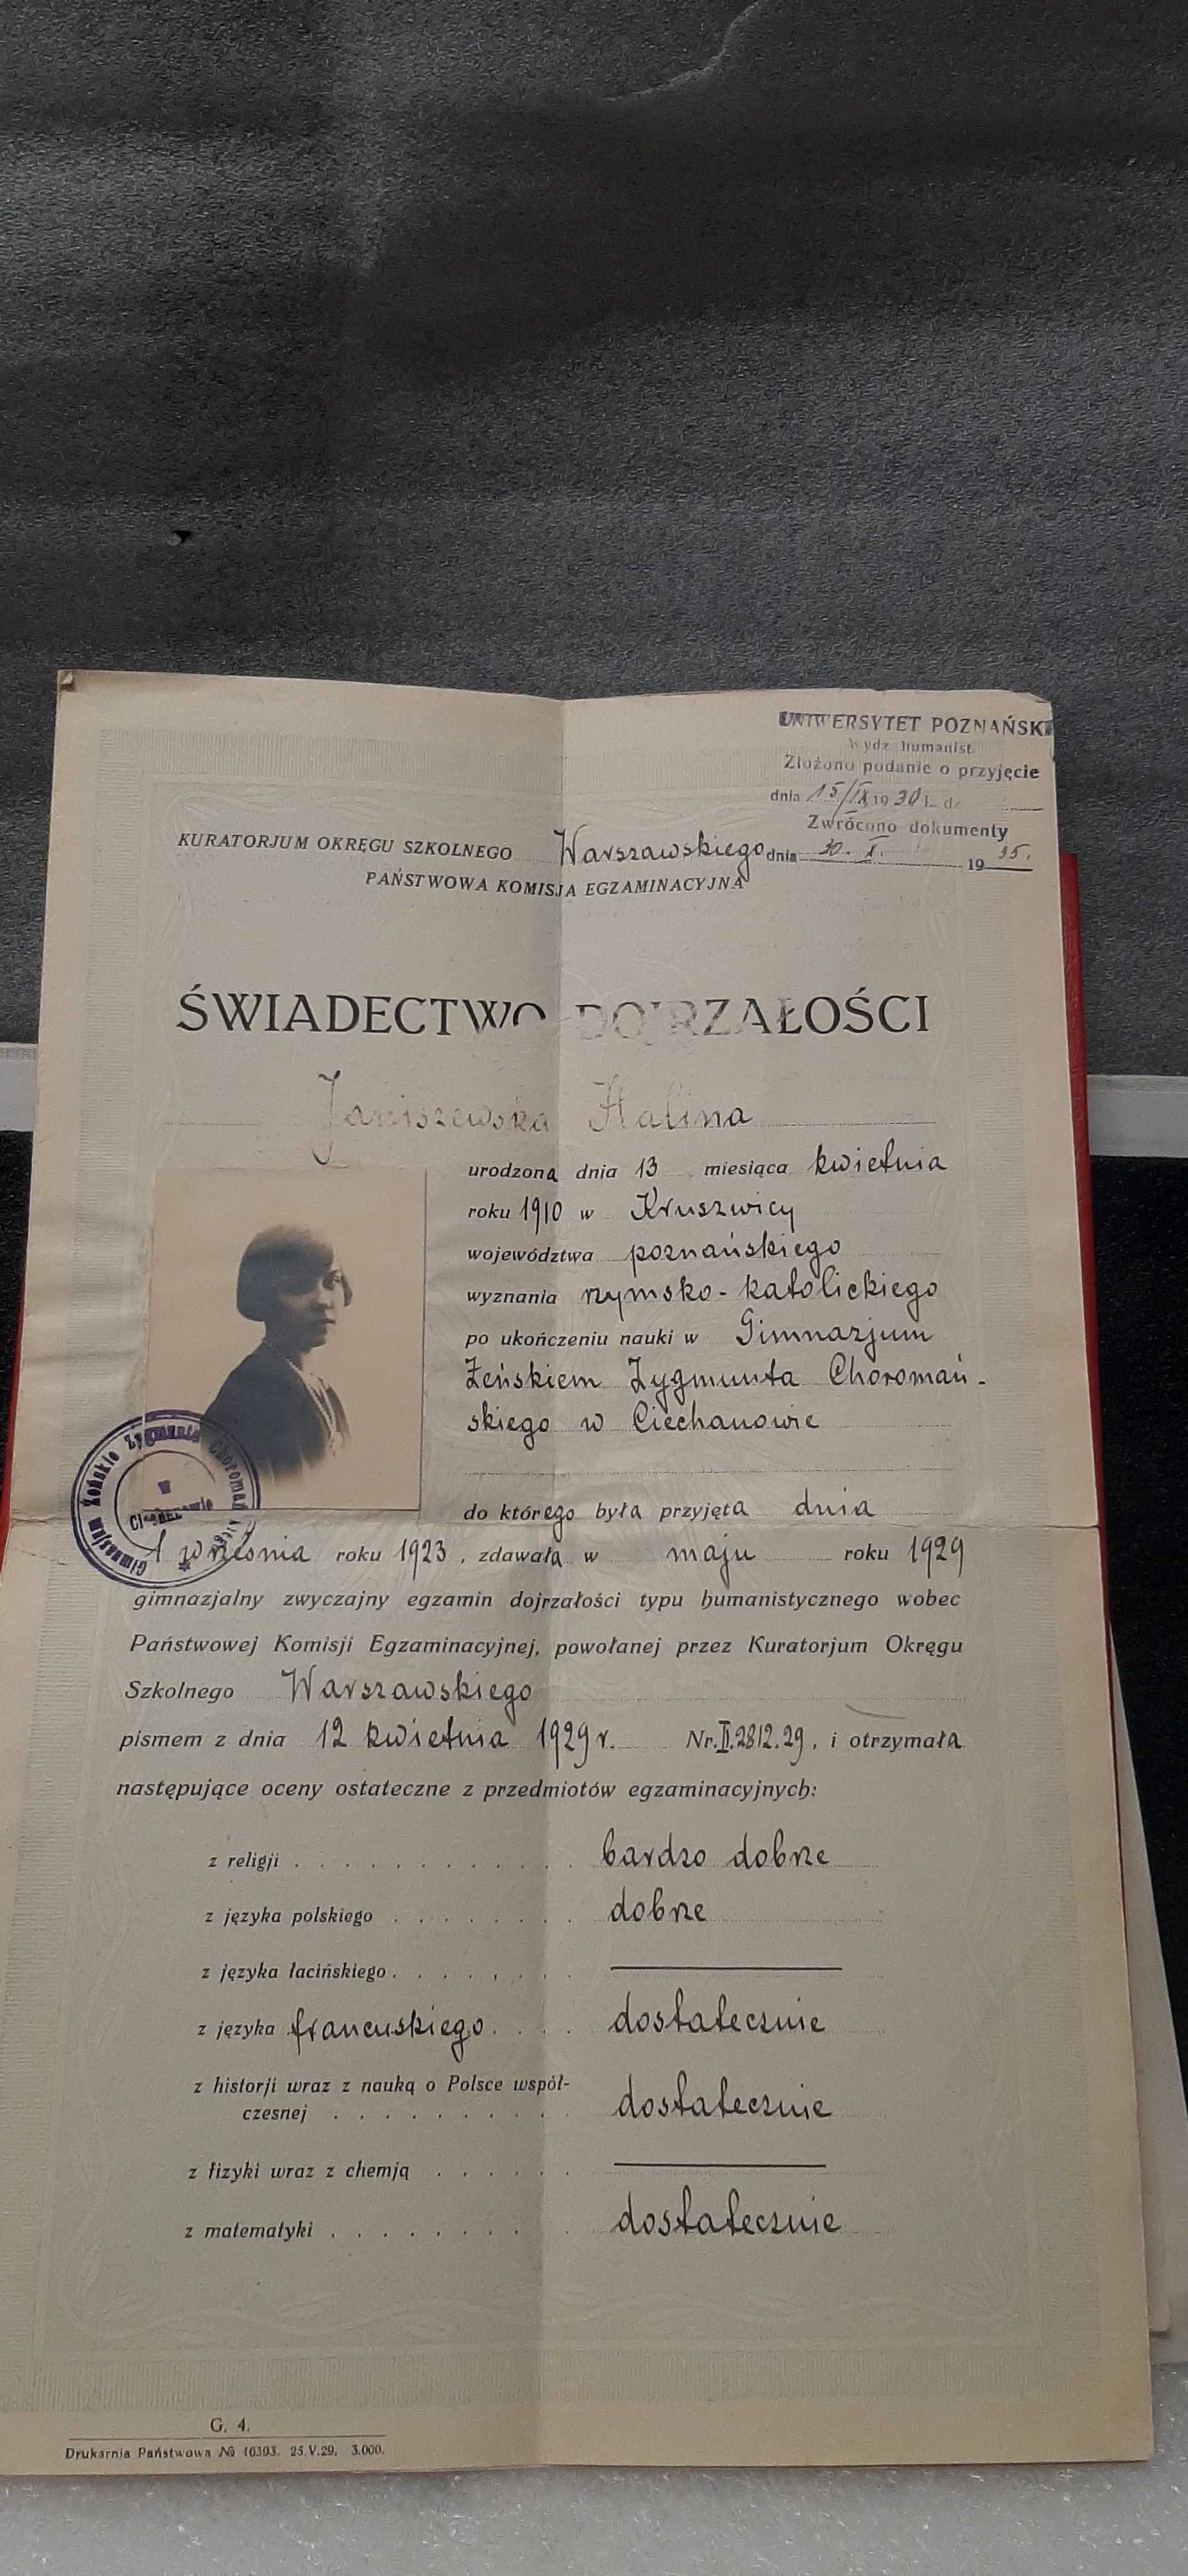 UNIWERSYTET POZNAŃSKI
Wydz. humanist.
Złożono podanie o przyjęcie
dnia 15/IX 1930 L. dz.
Zwrócono dokumenty
dnia 30. X. 1935.
KURATORJUM OKRĘGU SZKOLNEGO Warszawskiego
PAŃSTWOWA KOMISJA EGZAMINACYJNA
ŚWIADECTWO DOJRZAŁOŚCI
Janiszewska Halina
urodzona dnia 13 miesiąca kwietnia
roku 1910 w Kruszwicy
województwa poznańskiego
wyznania rzymsko-katolickiego
po ukończeniu nauki w Gimnazjum
Żeńskiem Zygmunta Choromań-
skiego w Ciechanowie
do którego była przyjęta dnia
1 września roku 1923, zdawała w maju roku 1929
gimnazjalny zwyczajny egzamin dojrzałości typu humanistycznego wobec
Państwowej Komisji Egzaminacyjnej, powołanej przez Kuratorjum Okręgu
Szkolnego Warszawskiego
pismem z dnia 12 kwietnia 1929 r. Nr. II.2812.29, i otrzymała
następujące oceny ostateczne z przedmiotów egzaminacyjnych:
z religji . . . . . . . . . . . . bardzo dobrze
z języka polskiego . . . . . . . . dobrze
z języka łacińskiego . . . . . . .
z języka francuskiego . . . . dostatecznie
z historji wraz z nauką o Polsce współ-
czesnej . . . . . . . . . . dostatecznie
z fizyki wraz z chemją . . . . . .
z matematyki . . . . . . . . . . dostatecznie
Gimnazjum Żeńskie Zygmunta Choromańskiego
w
Ciechanowie
G. 4.
Drukarnia Państwowa № 16393. 25.V.29. 3.000.